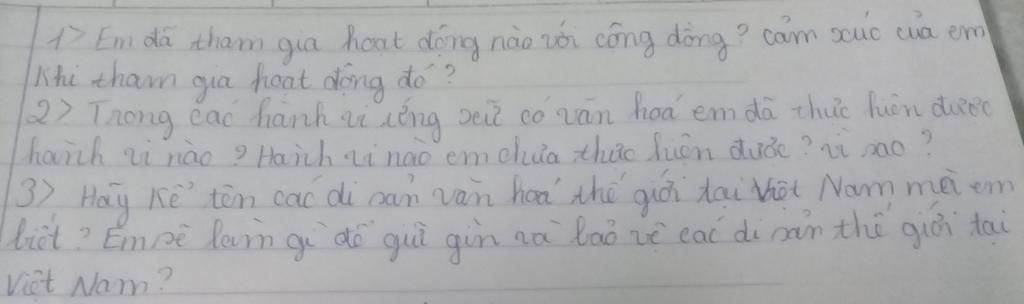 1> Em đã tham gia hoạt động nào với cộng đồng? cảm xúc của em
Khi tham gia hoạt động đó?
2> Trong các hành vi ứng xử có văn hoá em đã thực hiện được
hành vi nào? Hành vi nào em chưa thực hiện được? vì sao?
3> Hãy kể tên các di sản văn hoá thế giới tại Việt Nam mà em
biết? Em sẽ làm gì để giữ gìn và bảo vệ các di sản thế giới tại
Việt Nam?